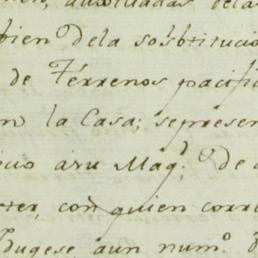 auxiliadas dela
bien dela sobstitucio
de Terrenos pacific
en la Casa; represen
icio asu Mag.d De a
con quien corre
dugese aun num.o